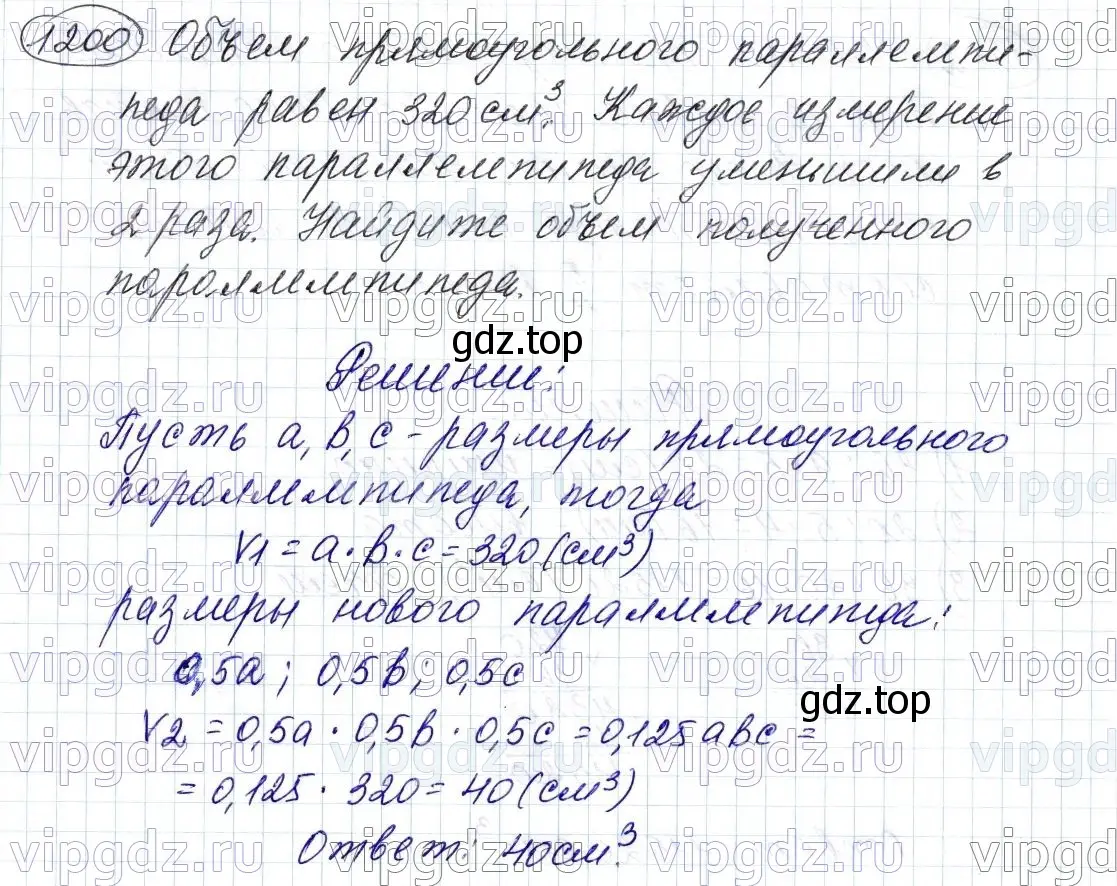 1200 Объем прямоугольного параллелепи-
педа равен 320 см³. Каждое измерение
этого параллелепипеда уменьшили в
2 раза. Найдите объем полученного
параллелепипеда.
gdz.top
Решение:
Пусть a, b, c - размеры прямоугольного
параллелепипеда, тогда
V1 = a · b · c = 320 (см³)
размеры нового параллелепипеда:
0,5a; 0,5b; 0,5c
gdz.top
V2 = 0,5a · 0,5b · 0,5c = 0,125abc =
= 0,125 · 320 = 40 (см³)
Ответ: 40 см³.
vipgdz.ru